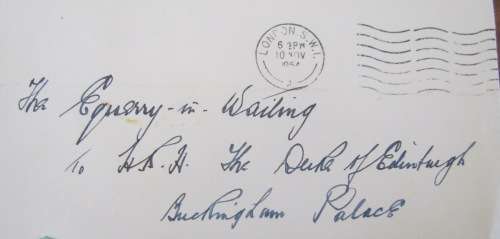 LONDON. S.W.1.
6 PM
10 NOV
The Equerry-in-Waiting
To H.R.H. The Duke of Edinburgh
Buckingham Palace